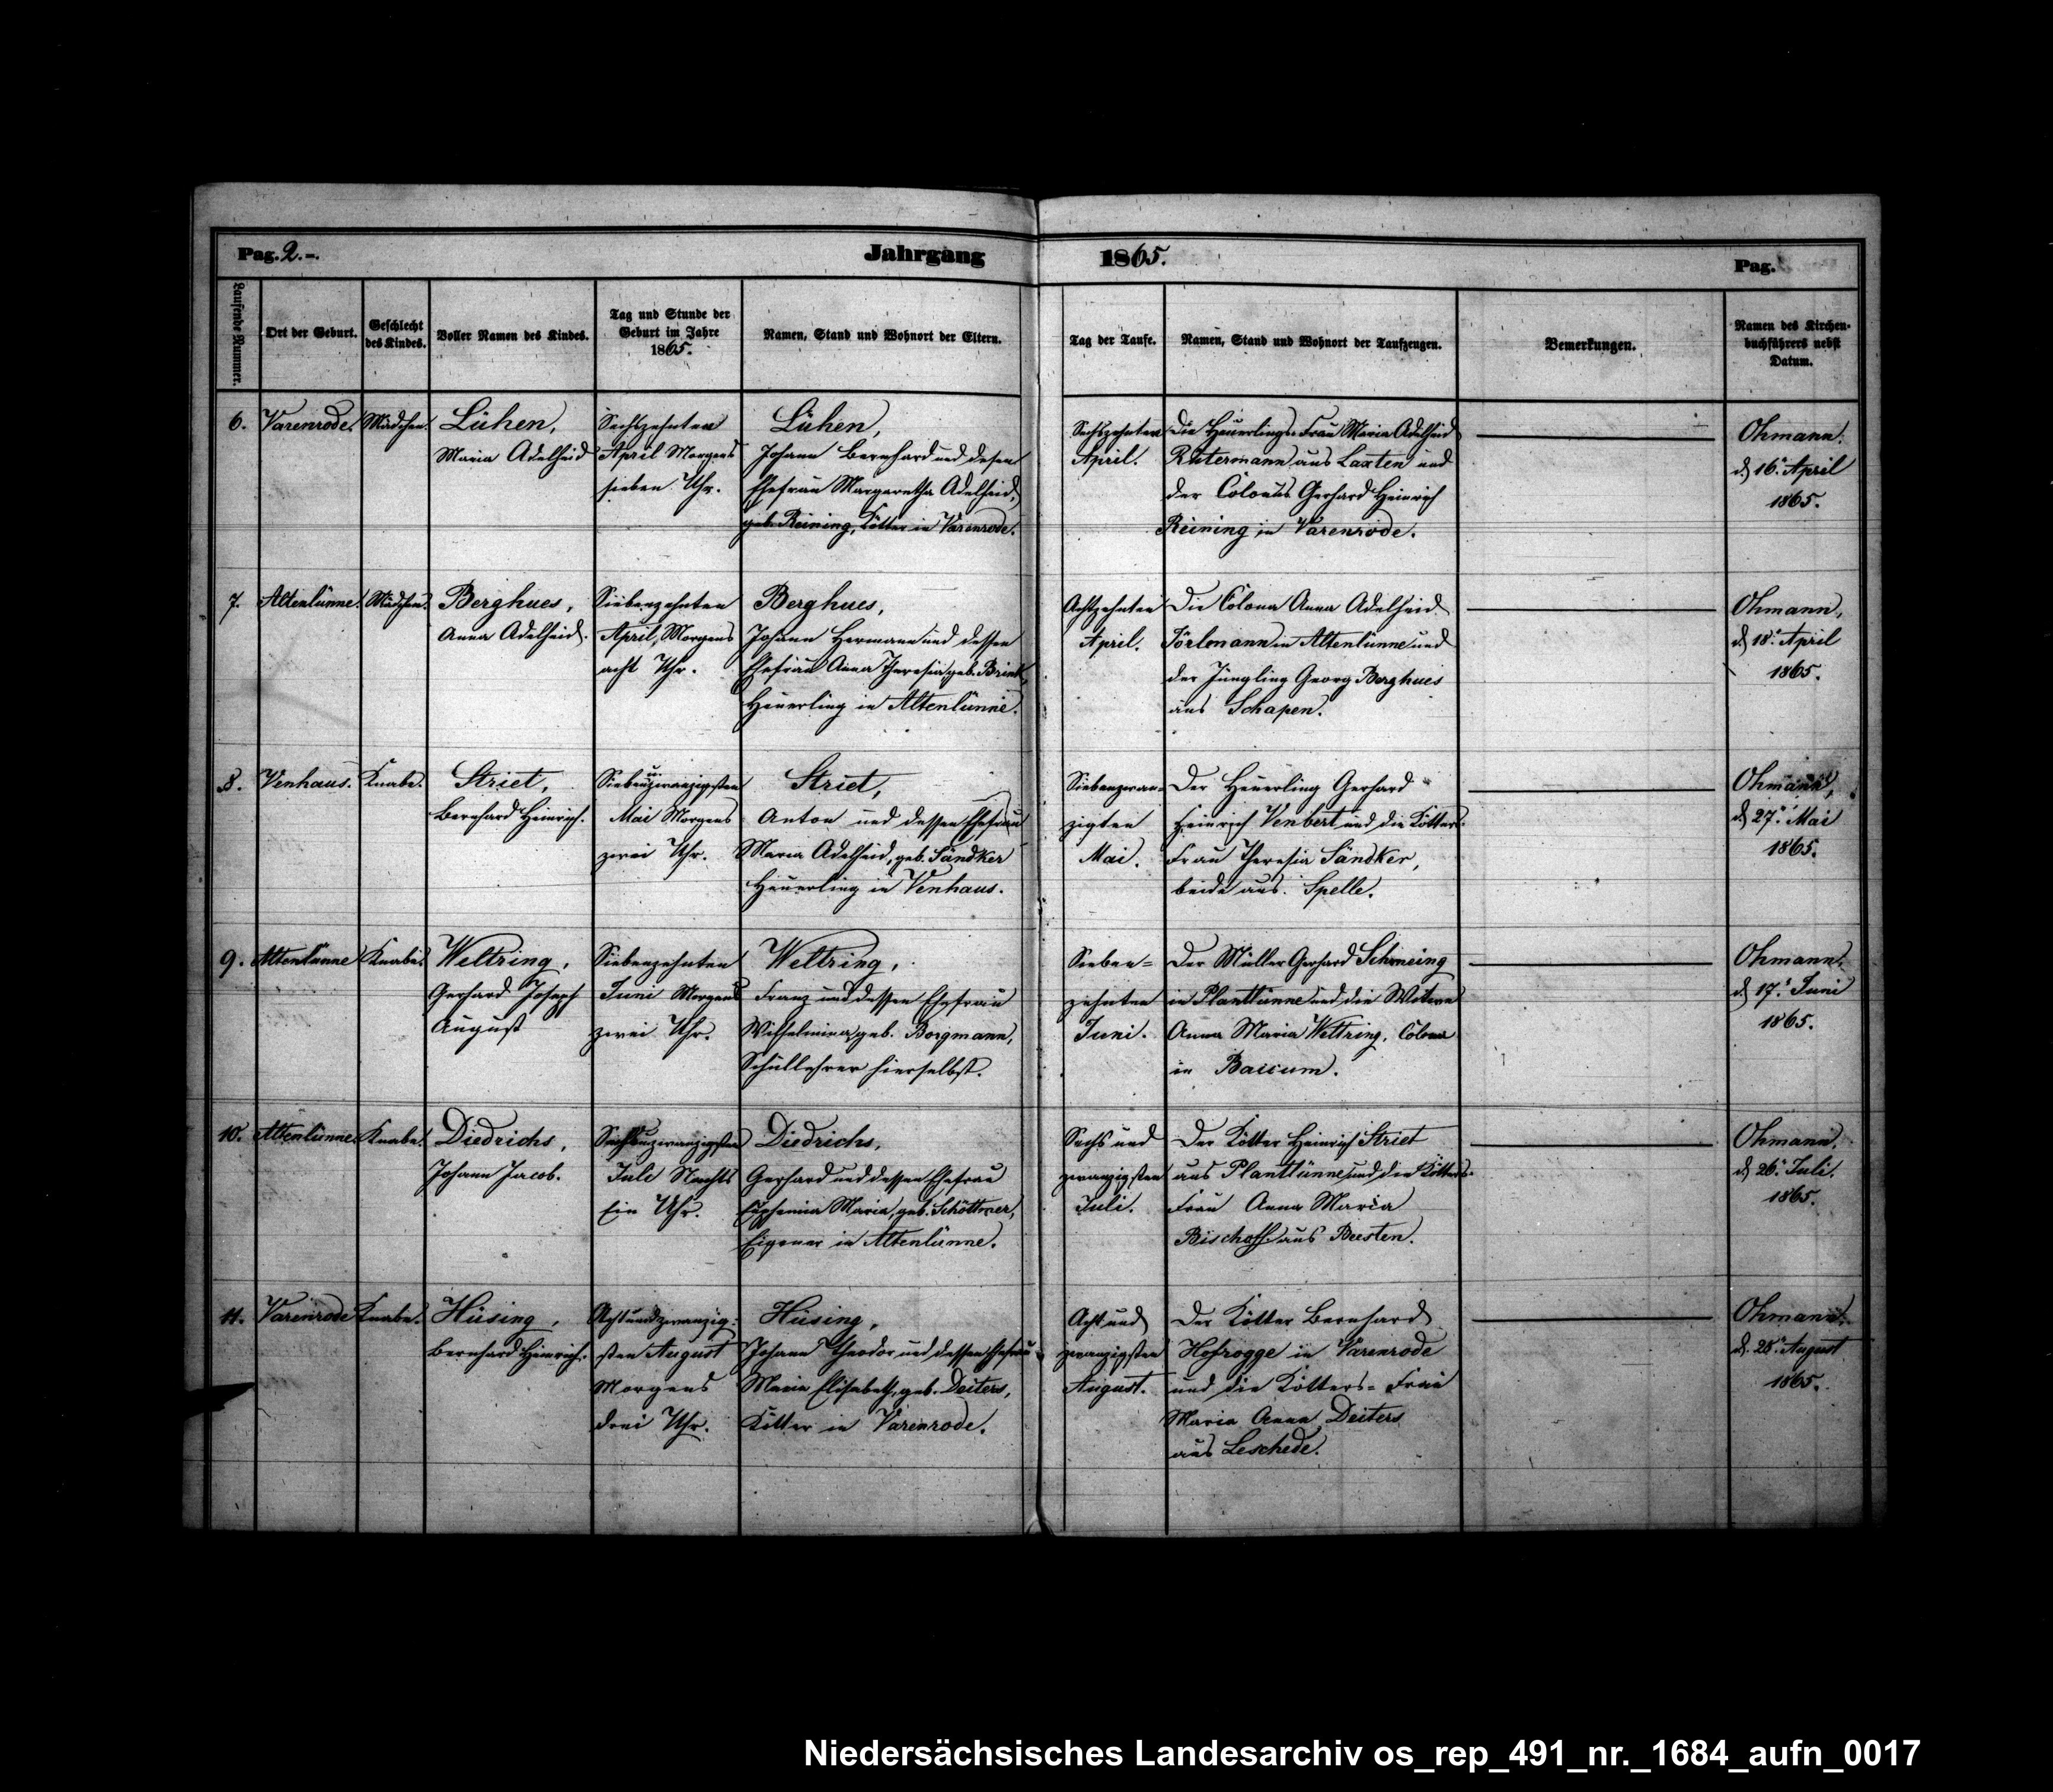 Pag. 2.-.
Jahrgang
1865.
Pag.
Laufende Nummer.
Ort der Geburt.
Geschlecht
des Kindes.
Voller Namen des Kindes.
Tag und Stunde der
Geburt im Jahre
1865.
Namen, Stand und Wohnort der Eltern.
Tag der Taufe.
Namen, Stand und Wohnort der Taufzeugen.
Bemerkungen.
Namen des Kirchen-
buchführers nebst
Datum.
6.
Varenrode.
Mädchen.
Lühen,
Maria Adelheid
Sechszehnten
April Morgens
sieben Uhr.
Lühen,
Johann Bernhard und dessen
Ehefrau Margaretha Adelheid,
geb. Reining, Kötter in Varenrode.
Sechszehnten
April.
Die Heuerlings-Frau Maria Adelheid
Rütermann aus Laxten und
der Colonus Gerhard Heinrich
Reining in Varenrode.
Ohmann.
d. 16. April
1865.
7.
Altenlünne.
Mädchen.
Berghues,
Anna Adelheid.
Siebenzehnten
April, Morgens
acht Uhr.
Berghues,
Johann Hermann und dessen
Ehefrau Anna Theresia geb. Brink,
Heuerling in Altenlünne.
Achtzehnten
April.
Die Colona Anna Adelheid
in Altenlünne und
der Jüngling Georg Berghues
aus Schapen.
Ohmann,
d. 18. April
1865.
8.
Venhaus.
Knabe.
Striet,
Bernhard Heinrich.
Siebenundzwanzigsten
Mai Morgens
zwei Uhr.
Striet,
Anton und dessen Ehefrau
Maria Adelheid, geb. Sändker
Heuerling in Venhaus.
Siebenzwan-
zigten
Mai.
Der Heuerling Gerhard
Heinrich Venbert und die Kötters-
Frau Theresia Sändker,
beide aus Spelle.
Ohmann,
d. 27. Mai
1865.
9.
Altenlünne
Knabe.
Weltring,
Gerhard Joseph
August
Siebenzehnten
Juni Morgens
zwei Uhr.
Weltring,
Franz und dessen Ehefrau
Wilhelmina geb. Borgmann,
Schullehrer hierselbst.
Sieben=
zehnten
Juni.
Der Müller Gerhard Schmeing
in Plantlünne und die Witwe
Anna Maria Weltring, Colona
in Baccum.
Ohmann.
d. 17. Juni
1865.
10.
Altenlünne.
Knabe.
Diedrichs,
Johann Jacob.
Sechsundzwanzigsten
Juli Nachts
Ein Uhr.
Diedrichs,
Gerhard und dessen Ehefrau
Euphemia Maria, geb. Schöttmer,
Eigener in Altenlünne.
Sechs und
zwanzigsten
Juli.
Der Kötter Heinrich Striet
aus Plantlünne und die Kötters-
Frau Anna Maria
Bischoff aus Beesten.
Ohmann.
d. 26. Juli.
1865.
11.
Varenrode
Knabe.
Hüsing,
Bernhard Heinrich.
Achtundzwanzig-
sten August
Morgens
drei Uhr.
Hüsing,
Johann Theodor und dessen Ehefrau
Maria Elisabeth, geb. Deiters,
Kötter in Varenrode.
Acht und
zwanzigsten
August.
Der Kötter Bernhard
Hofrogge in Varenrode
und die Kötters-Frau
Maria Anna Deiters
aus Leschede.
Ohmann.
d. 28. August
1865.
Niedersächsisches Landesarchiv os_rep_491_nr._1684_aufn_0017